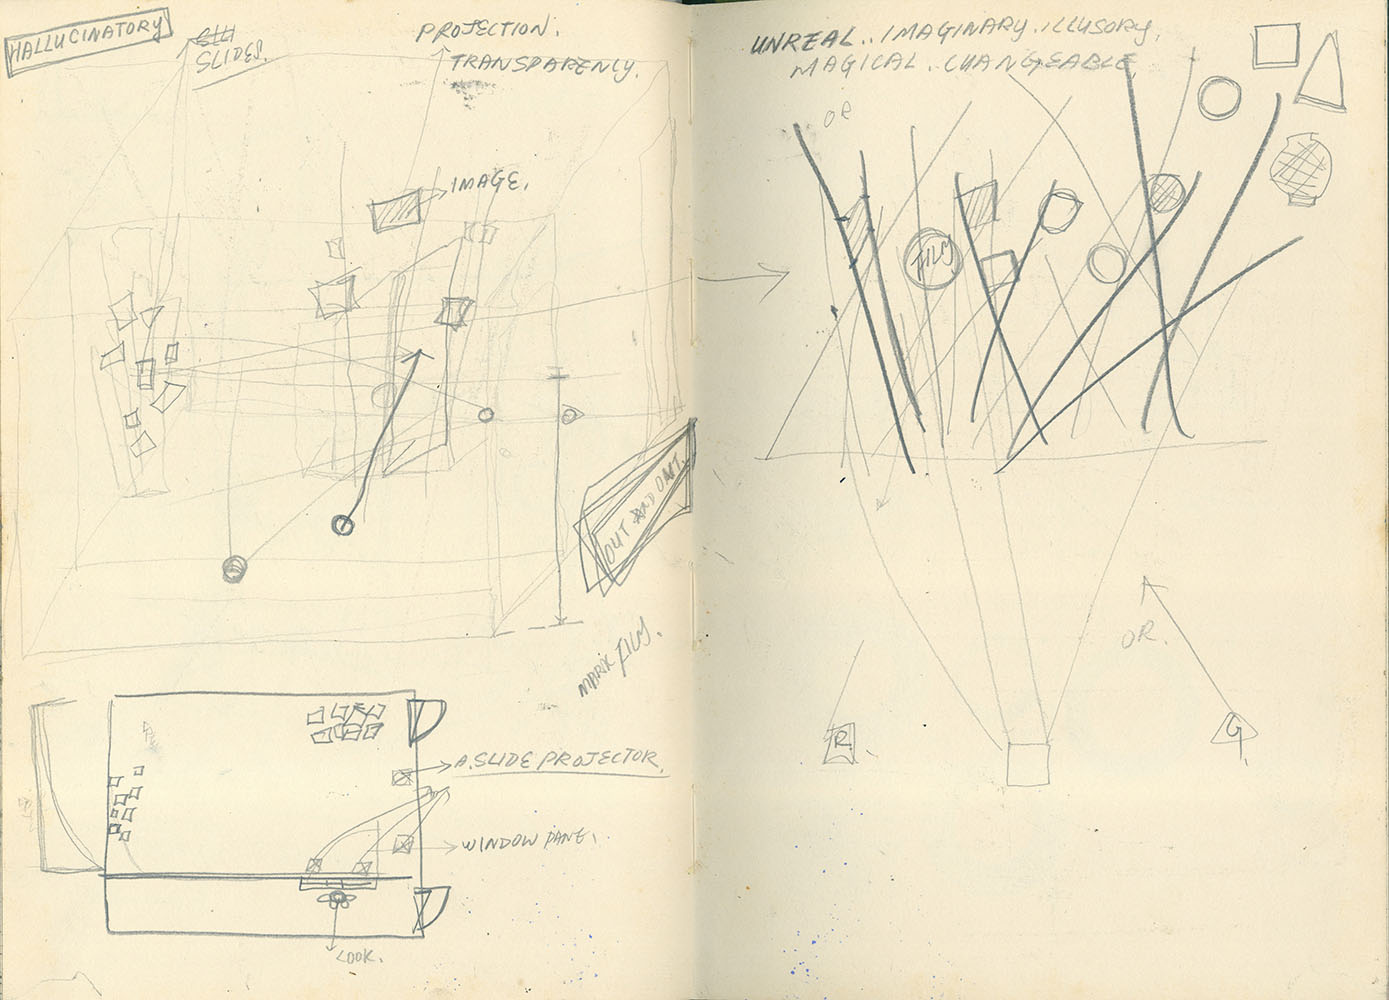 HALLUCINATORY
SLIDES.
PROJECTION.
TRANSPARENCY.
IMAGE.
OUT AND OUT.
FILM.
A. SLIDE PROJECTOR
WINDOW PANE.
LOOK.
UNREAL.. IMAGINARY. ILLUSORY.
MAGICAL. CHANGEABLE
OR
FILM
OR.
R.
G.